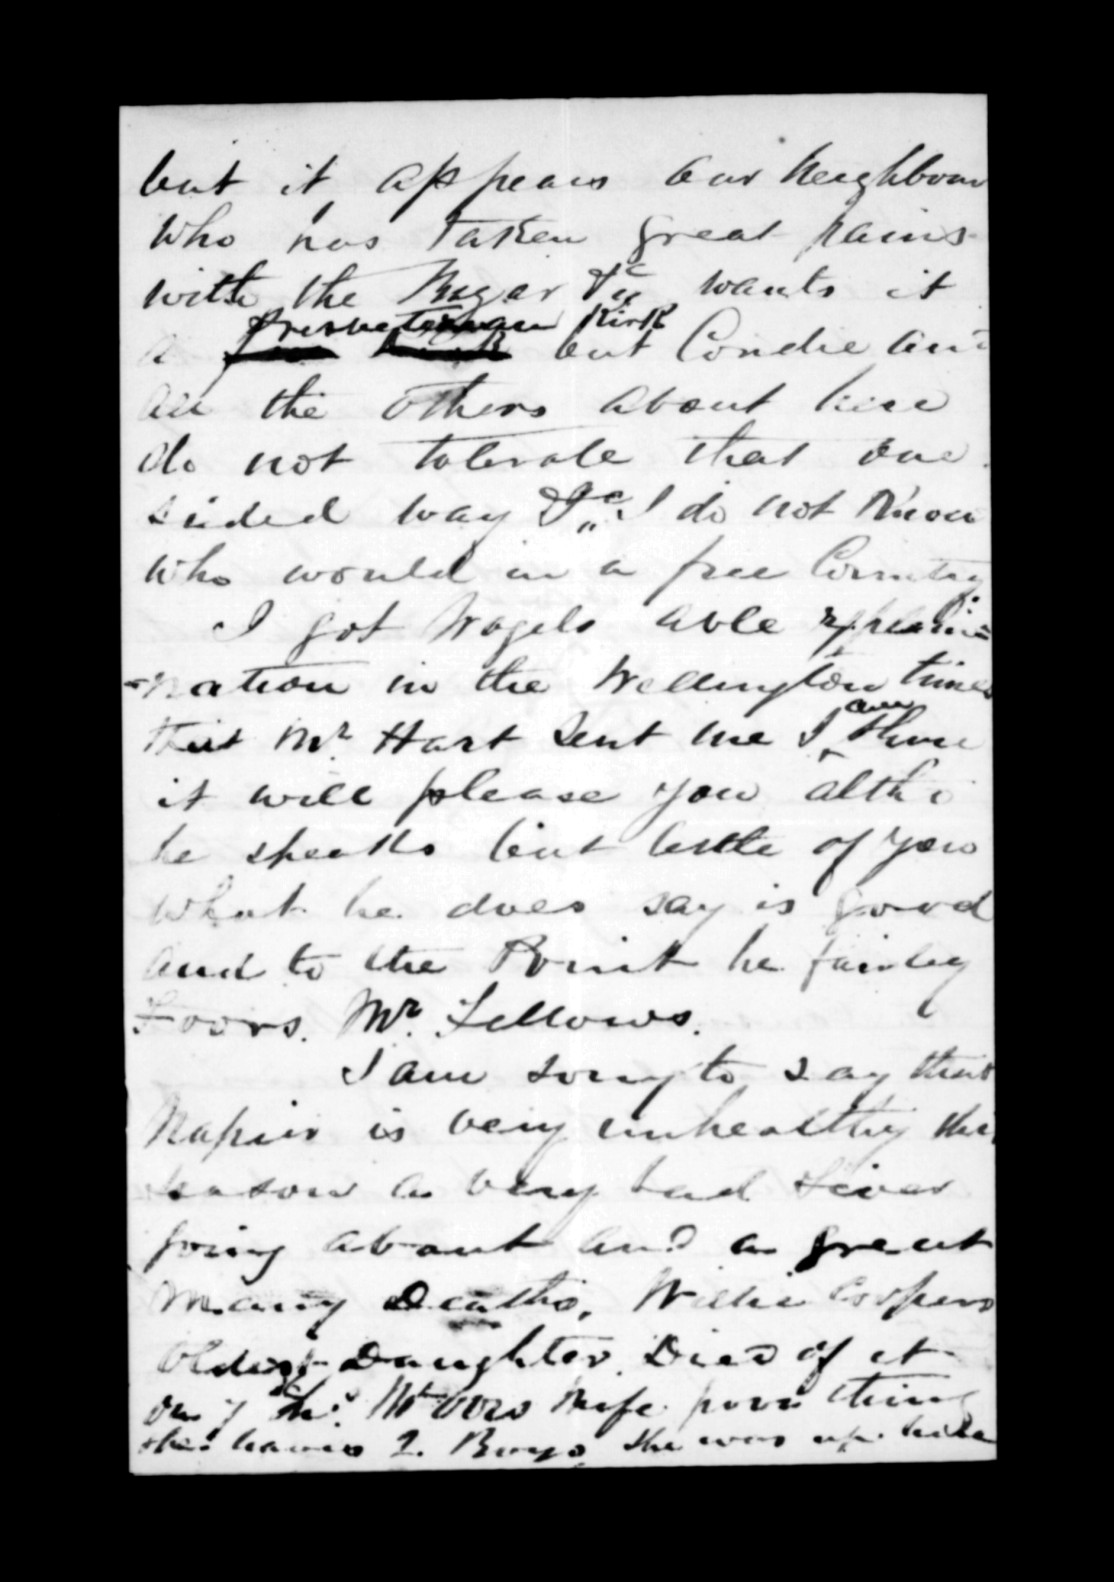 but it appears our Neighbour
who has taken great pains
with the &c wants it
a Presbeterian Kirk but Condie and
all the others about here
do not tolerate that one
sided way &c. I do not Know
who would in a free Country
I got Vogels able explani=
=nation in the Wellington times
that Mr Hart sent me I am shure
it will please you altho
he speaks but little of you
what he does say is good
and to the Point he fairley
Floors. Mr Fellows.
I am sorry to say that
Napier is very unhealthy this
season a very bad Fiver
going about and a great
many Deaths, Willie Coopers
Oldest Daughter Died of it
Wife poor thing
she leaves 2. Boys she was up here